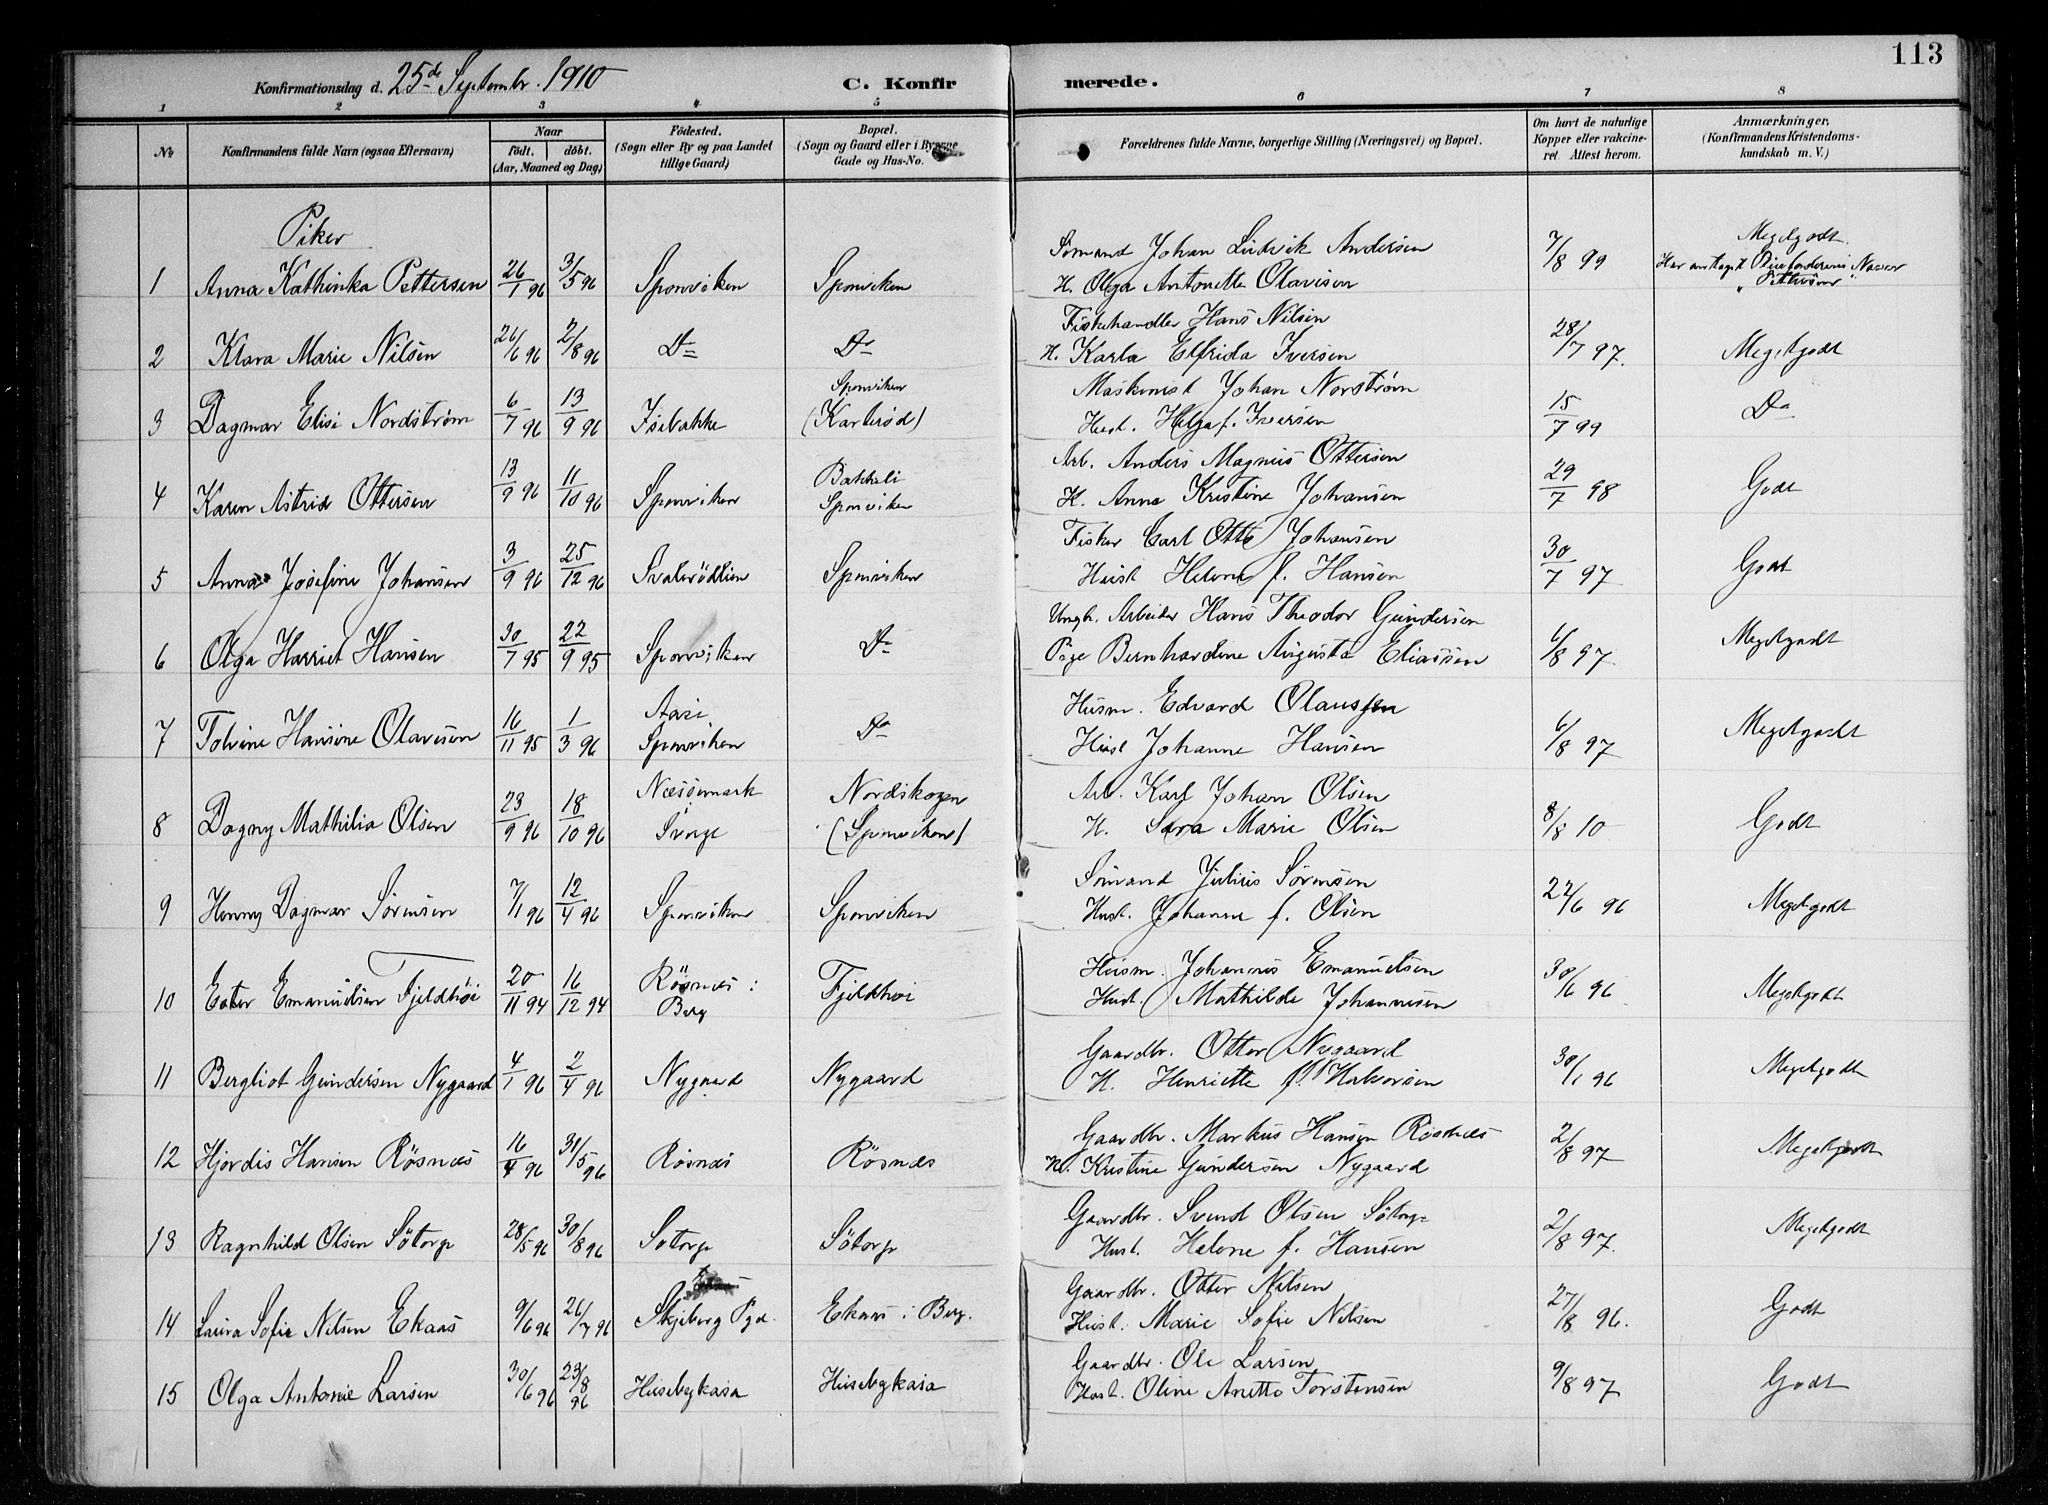 113
Konfirmationsdag d. 25de Septembr. 1910 C. Konfirmerede.
1 2 3 4 5 6 7 8
No Konfirmandens fulde Navn (ogsaa Efternavn) Naar født. døbt. (Aar, Maaned og Dag) Fødested. (Sogn eller By og paa Landet tillige Gaard) Bopæl. (Sogn og Gaard eller i Byerne Gade og Hus-No. Forældrenes fulde Navne, borgerlige Stilling (Næringsvei) og Bopæl. Om havt de naturlige Kopper eller vakcineret Attest herom. Anmærkninger, (Konfirmandens Kristendomskundskab m. V.)
Piker
1 Anna Kathinka Pettersen 26/1 96 3/5 96 Sponviken Sponviken Sømand Johan Ludvik Andersen 7/8 99 Megetgodt.
H. Olga Antonette Olavisen Har antaget Navn "Pettersen"
2 Klara Marie Nilsen 26/6 96 2/8 96 Do Do Fiskehandler Hans Nilsen 28/7 97. Megetgodt
H. Karla Elfrida Iversen
3 Dagmar Elise Nordstrøm 6/7 96 13/9 96 Isebakke Sponviken (Karlsrød) Maskinist Johan Norstrøm 15/7 99 Do
Hust. Helga f. Iversen
4 Karen Astrid Ottersen 13/9 96 11/10 96 Sponviken Bakkeli Sponviken Arb. Anders Magnus Ottersen 29/7 98 Godt
H. Anna Kristine Johansen
5 Anna Josefine Johansen 3/9 96 25/12 96 Svalerødlien Sponviken Fisker Carl Otto Johansen 30/7 97 Godt
Hust Helene f. Hansen
6 Olga Harriet Hansen 30/7 95 22/9 95 Sponviken Do Ungk. Arbeider Hans Theodor Gundersen 6/8 97 Megetgodt
Pige Bernhardine Augusta Eliassen
7 Tolvine Hansine Olavesen 16/11 95 1/3 96 Sponviken Do Husm. Edvard Olaussen 6/8 97 Megetgodt
Hust Johanne Hansen
8 Dagny Mathilia Olsen 23/9 96 18/10 96 Næssemark Sverge Nordskogen (Sponviken) Arb. Karl Johan Olsen 8/8 10 Godt
H. Sara Marie Olsen
9 Henny Dagmar Sørensen 7/1 96 12/4 96 Sponviken Sponviken Sømand Julius Sørensen 22/6 96 Megetgodt
Hust. Johanne f. Olsen
10 Ester Emanuelsen Fjeldhøi 20/11 94 16/12 94 Røsnæs i Berg Fjeldhøi Husm. Johannes Emanuelsen 30/6 96 Megetgodt
Hust. Mathilde Johannesen
11 Bergliot Gundersen Nygaard 4/1 96 2/4 96 Nygaard Nygaard Gaardbr. Otter Nygaard 30/1 96 Megetgodt
H. Henriette f. Halvorsen
12 Hjørdis Hansen Røsnæs 16/4 96 31/5 96 Røsnæs Røsnæs Gaardbr. Markus Hansen Røsnæs 2/8 97 Megetgodt
H. Kristine Gundersen Nygaard
13 Ragnhild Olsen Søtorp 28/5 96 30/8 96 Sotorp Søtorp Gaardbr. Svend Olsen Søtorp 2/8 97. Megetgodt
Hust. Helene f. Hansen
14 Laura Sofie Nilsen Ekaas 9/6 96 26/7 96 Skjeberg Pgd. Ekaas i Berg. Gaardbr. Otter Nilsen 27/8 96. Godt
Hust. Marie Sofie Nilsen
15 Olga Antonie Larsen 30/6 96 23/8 96 Husebykasa Husebykasa Gaardbr. Ole Larsen 9/8 97 Godt
Hust. Oline Anette Torstensen